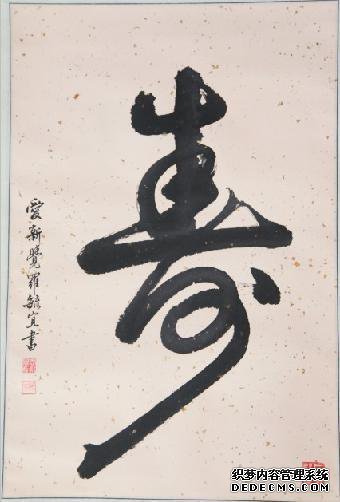 寿
愛新覺羅毓宜書
织梦内容管理系统
DEDECMS.COM